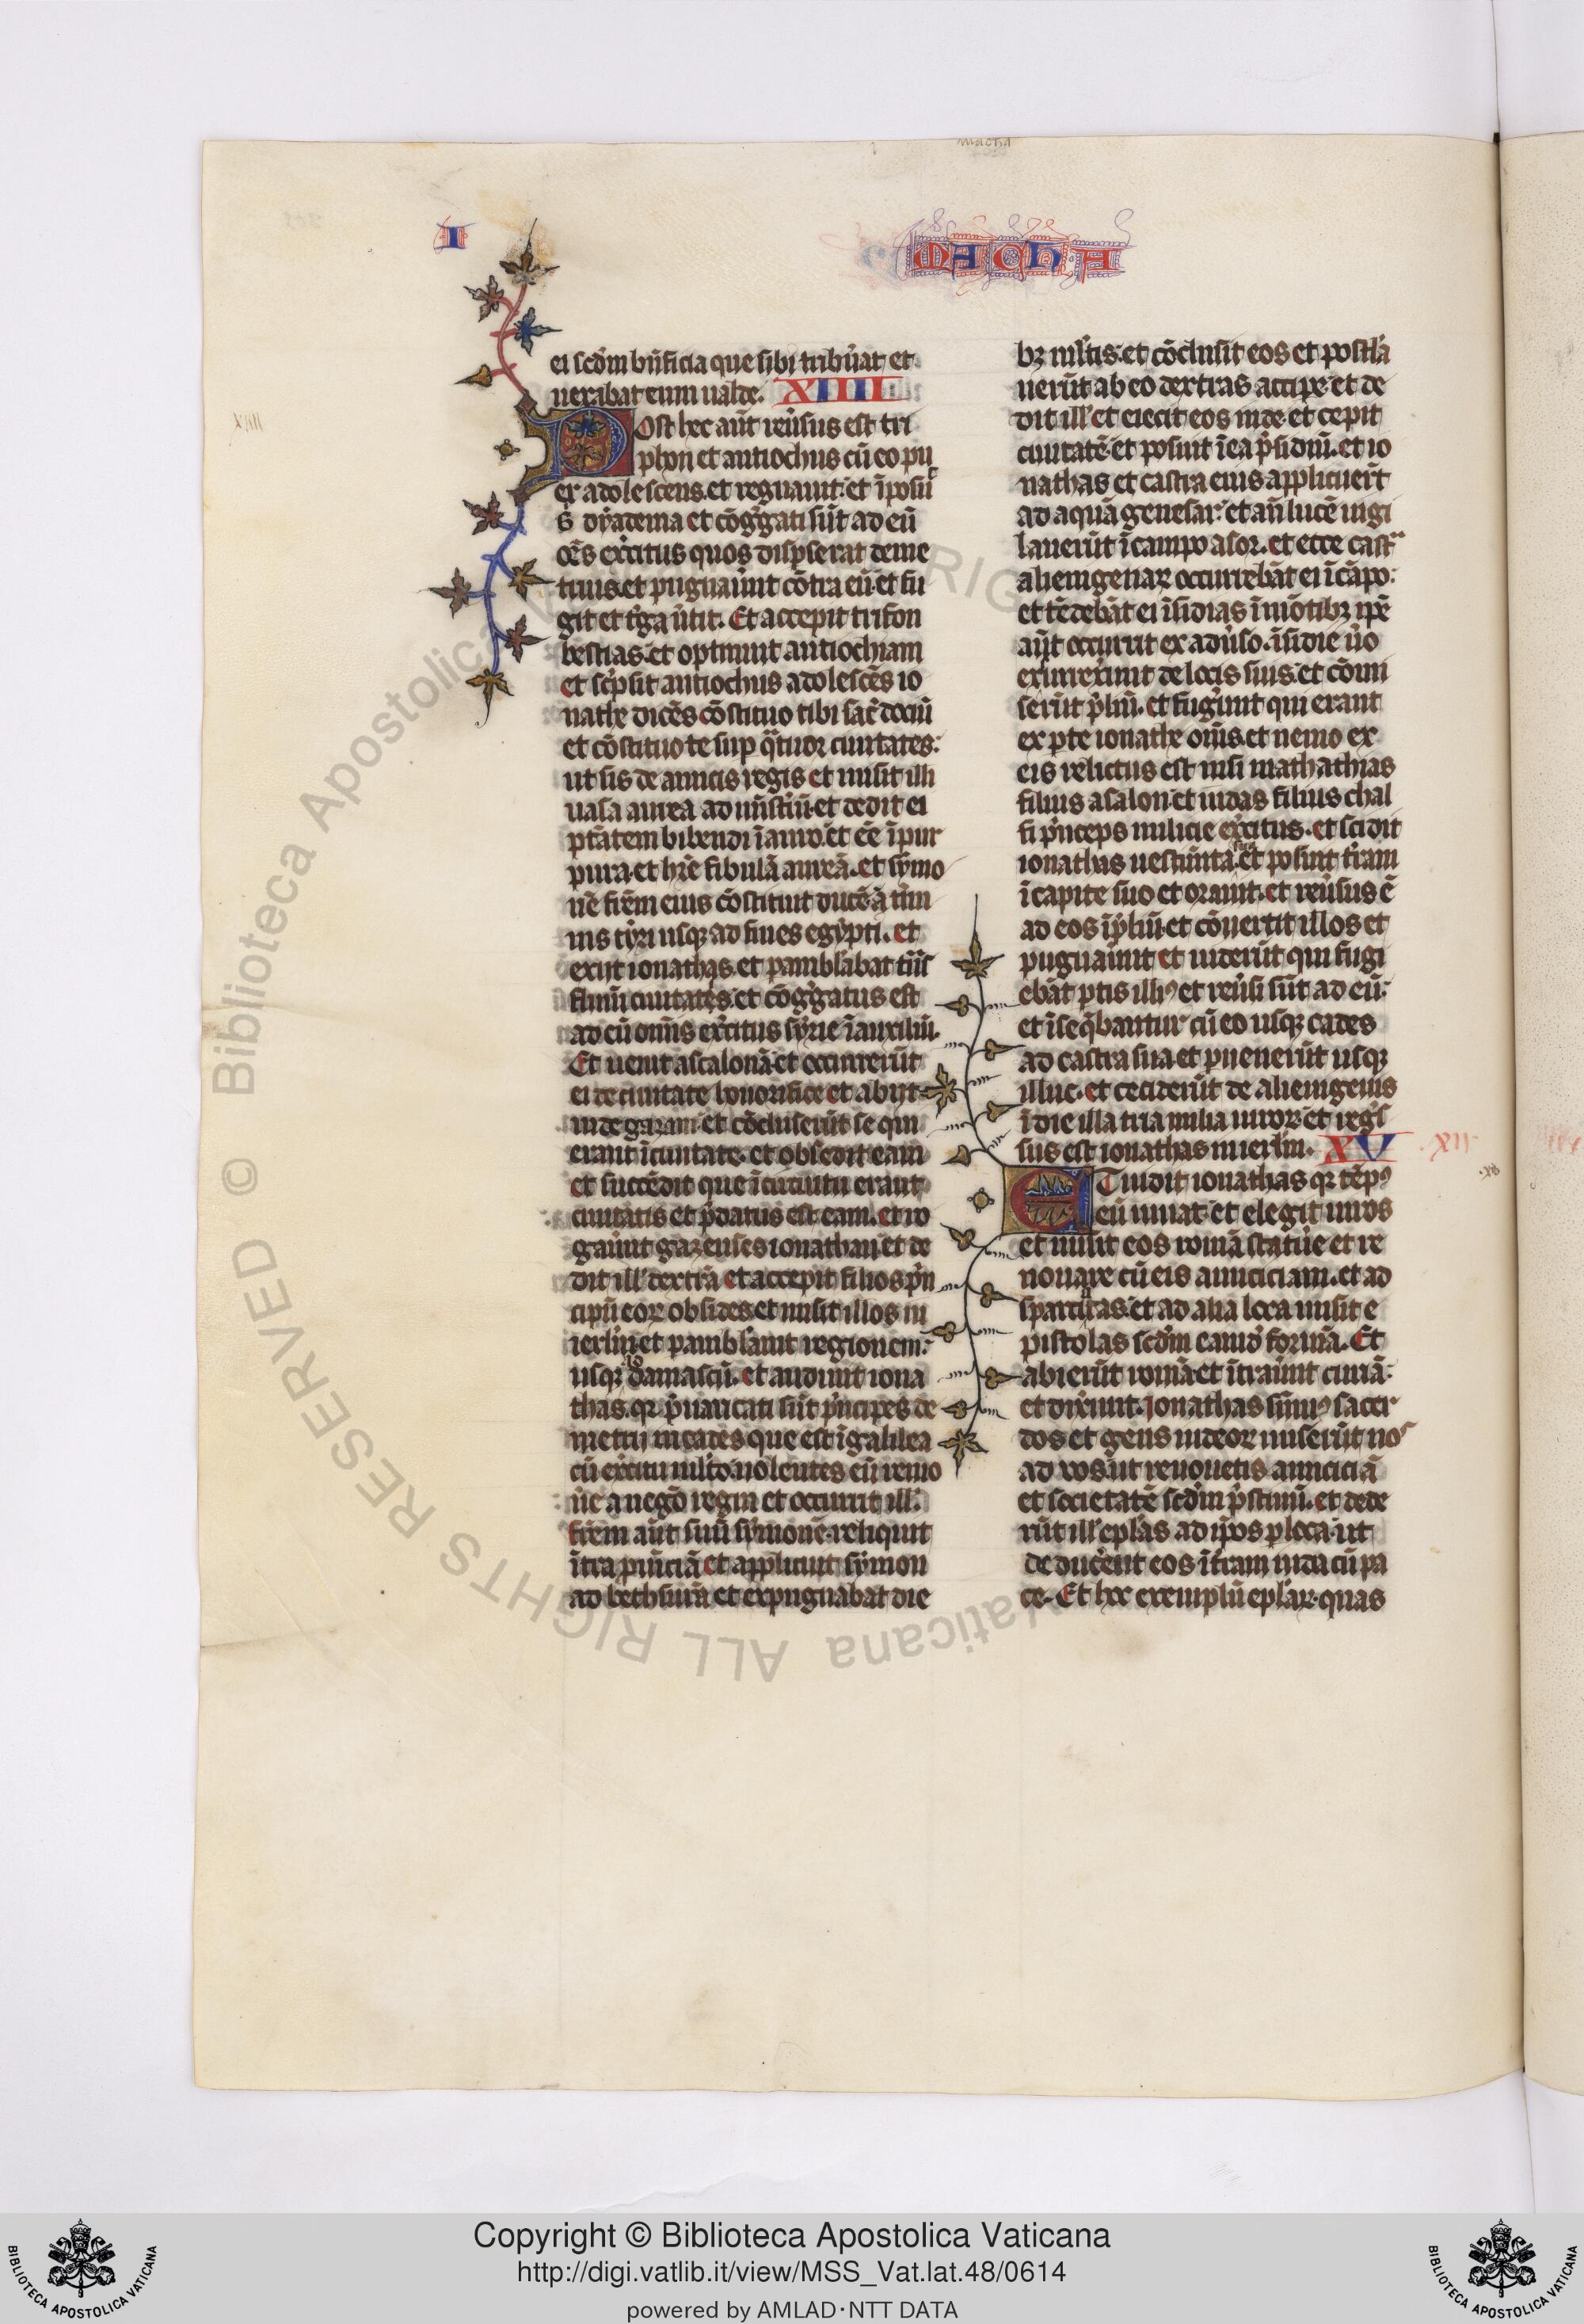 macha
I
MACHA
ei scdm bnficia que sibi tribuat et
uexabat eum ualde. XIIII
Post hec aut reuersus est tri
phon et antiochus cu eo pu
er adolescens. et regnauit. et iposuit
s dyadema et cogregati sut ad eu
oes excitus quos dispserat deme
trius. et pugnauut cotra eu. et fu
git et tga utit. Et accepit trifon
bestias. et optinuit antiochiam
et scpsit antiochus adolesces io
nathe dices costituo tibi sacdociu
et costituo te sup qtuor ciuitates:
ut sis de amicis regis et misit illi
uasa aurea ad mistiu. et dedit ei
ptatem bibendi i auro. et ee i pur
pura. et hre fibula aurea. et symo
ne frem eius costituit duce a tmi
nis tyri usqz ad fines egypti. et
exiit ionathas. et pambulabat tns
flumu ciuitates. et cogregatus est
ad eu omis excitus syrie i auxiliu.
Et uenit ascalona. et occurrerut
ei de ciuitate honorifice et abiit
inde gazam. et cocluserut se qui
erant i ciuitate. et obsedit eam
et succedit que i circuitu erant
ciuitatis et pdatus est eam. et ro
gauut gazenses ionathan. et de
dit ill dextra et accepit filios pn
cipu eor obsides et misit illos in
ierlm et pambulauit regionem:
usqz damascu. et audiuit iona
thas. qr puaricati sut pncipes de
metrij in cades que est i galilea
cu excitu mlto. nolentes eu remo
ue a nego regni et occurrit ill.
frem aut suu symone. reliquit
itra puicia et applicuit symon
ad bethsura et expugnabat die
bz mltis. et coclusit eos et postla
uerut ab eo dextras accipe. et de
dit ill et eiecit eos inde. et cepit
ciuitate. et posuit i ea psidiu. et io
nathas et castra eius applicuert
ad aqua genesar. et an luce uigi
lauerut i campo asor. et ecce castra
alienigenar occurrebat ei i capo:
et tedebat ei isidias i motibz ipe
aut occurrit ex aduso. isidie uo
exurrexut de locis suis. et comi
serut pliu. et fugut qui erant
ex pte ionathe ois. et nemo ex
eis relictus est nisi mathathias
filius asalon. et iudas filius chal
fi pnceps milicie excitus. et scidit
ionathas uestimta sua. et posuit tram
i capite suo et orauit. et reusus e
ad eos i pliu. et couertit illos et
pugnauut et uiderut qui fugi
ebat ptis illi9 et reusi sut ad eu.
et isequbantur cu eo usqz cades
ad castra sua et puenerut usqz
illuc. et ceciderut de alienigenis
i die illa tria milia uiror. et regs
sus est ionathas in ierlm. XV
Et uidit ionathas qr temp9
eu iuuat et elegit uiros
et misit eos roma statue et re
nouare cu eis amiciciam. et ad
sparciatas. et ad alia loca misit e
pistolas scdm eamd forma. Et
abierut roma. et itrauut curia.
et dixerut. Jonathas summ9 sacer
dos et gens iudeor miserut nos
ad uos. ut renouetis amicicia
et societate scdm pstinu. et dede
rut ill eplas ad ipos p loca. ut
deducent eos i tram iuda cu pa
ce. Et hec exemplu eplar. quas
Copyright © Biblioteca Apostolica Vaticana
http://digi.vatlib.it/view/MSS_Vat.lat.48/0614
powered by AMLAD·NTT DATA
BIBLIOTECA APOSTOLICA VATICANA
BIBLIOTECA APOSTOLICA VATICANA
© Biblioteca Apostolica Vaticana ALL RIGHTS RESERVED